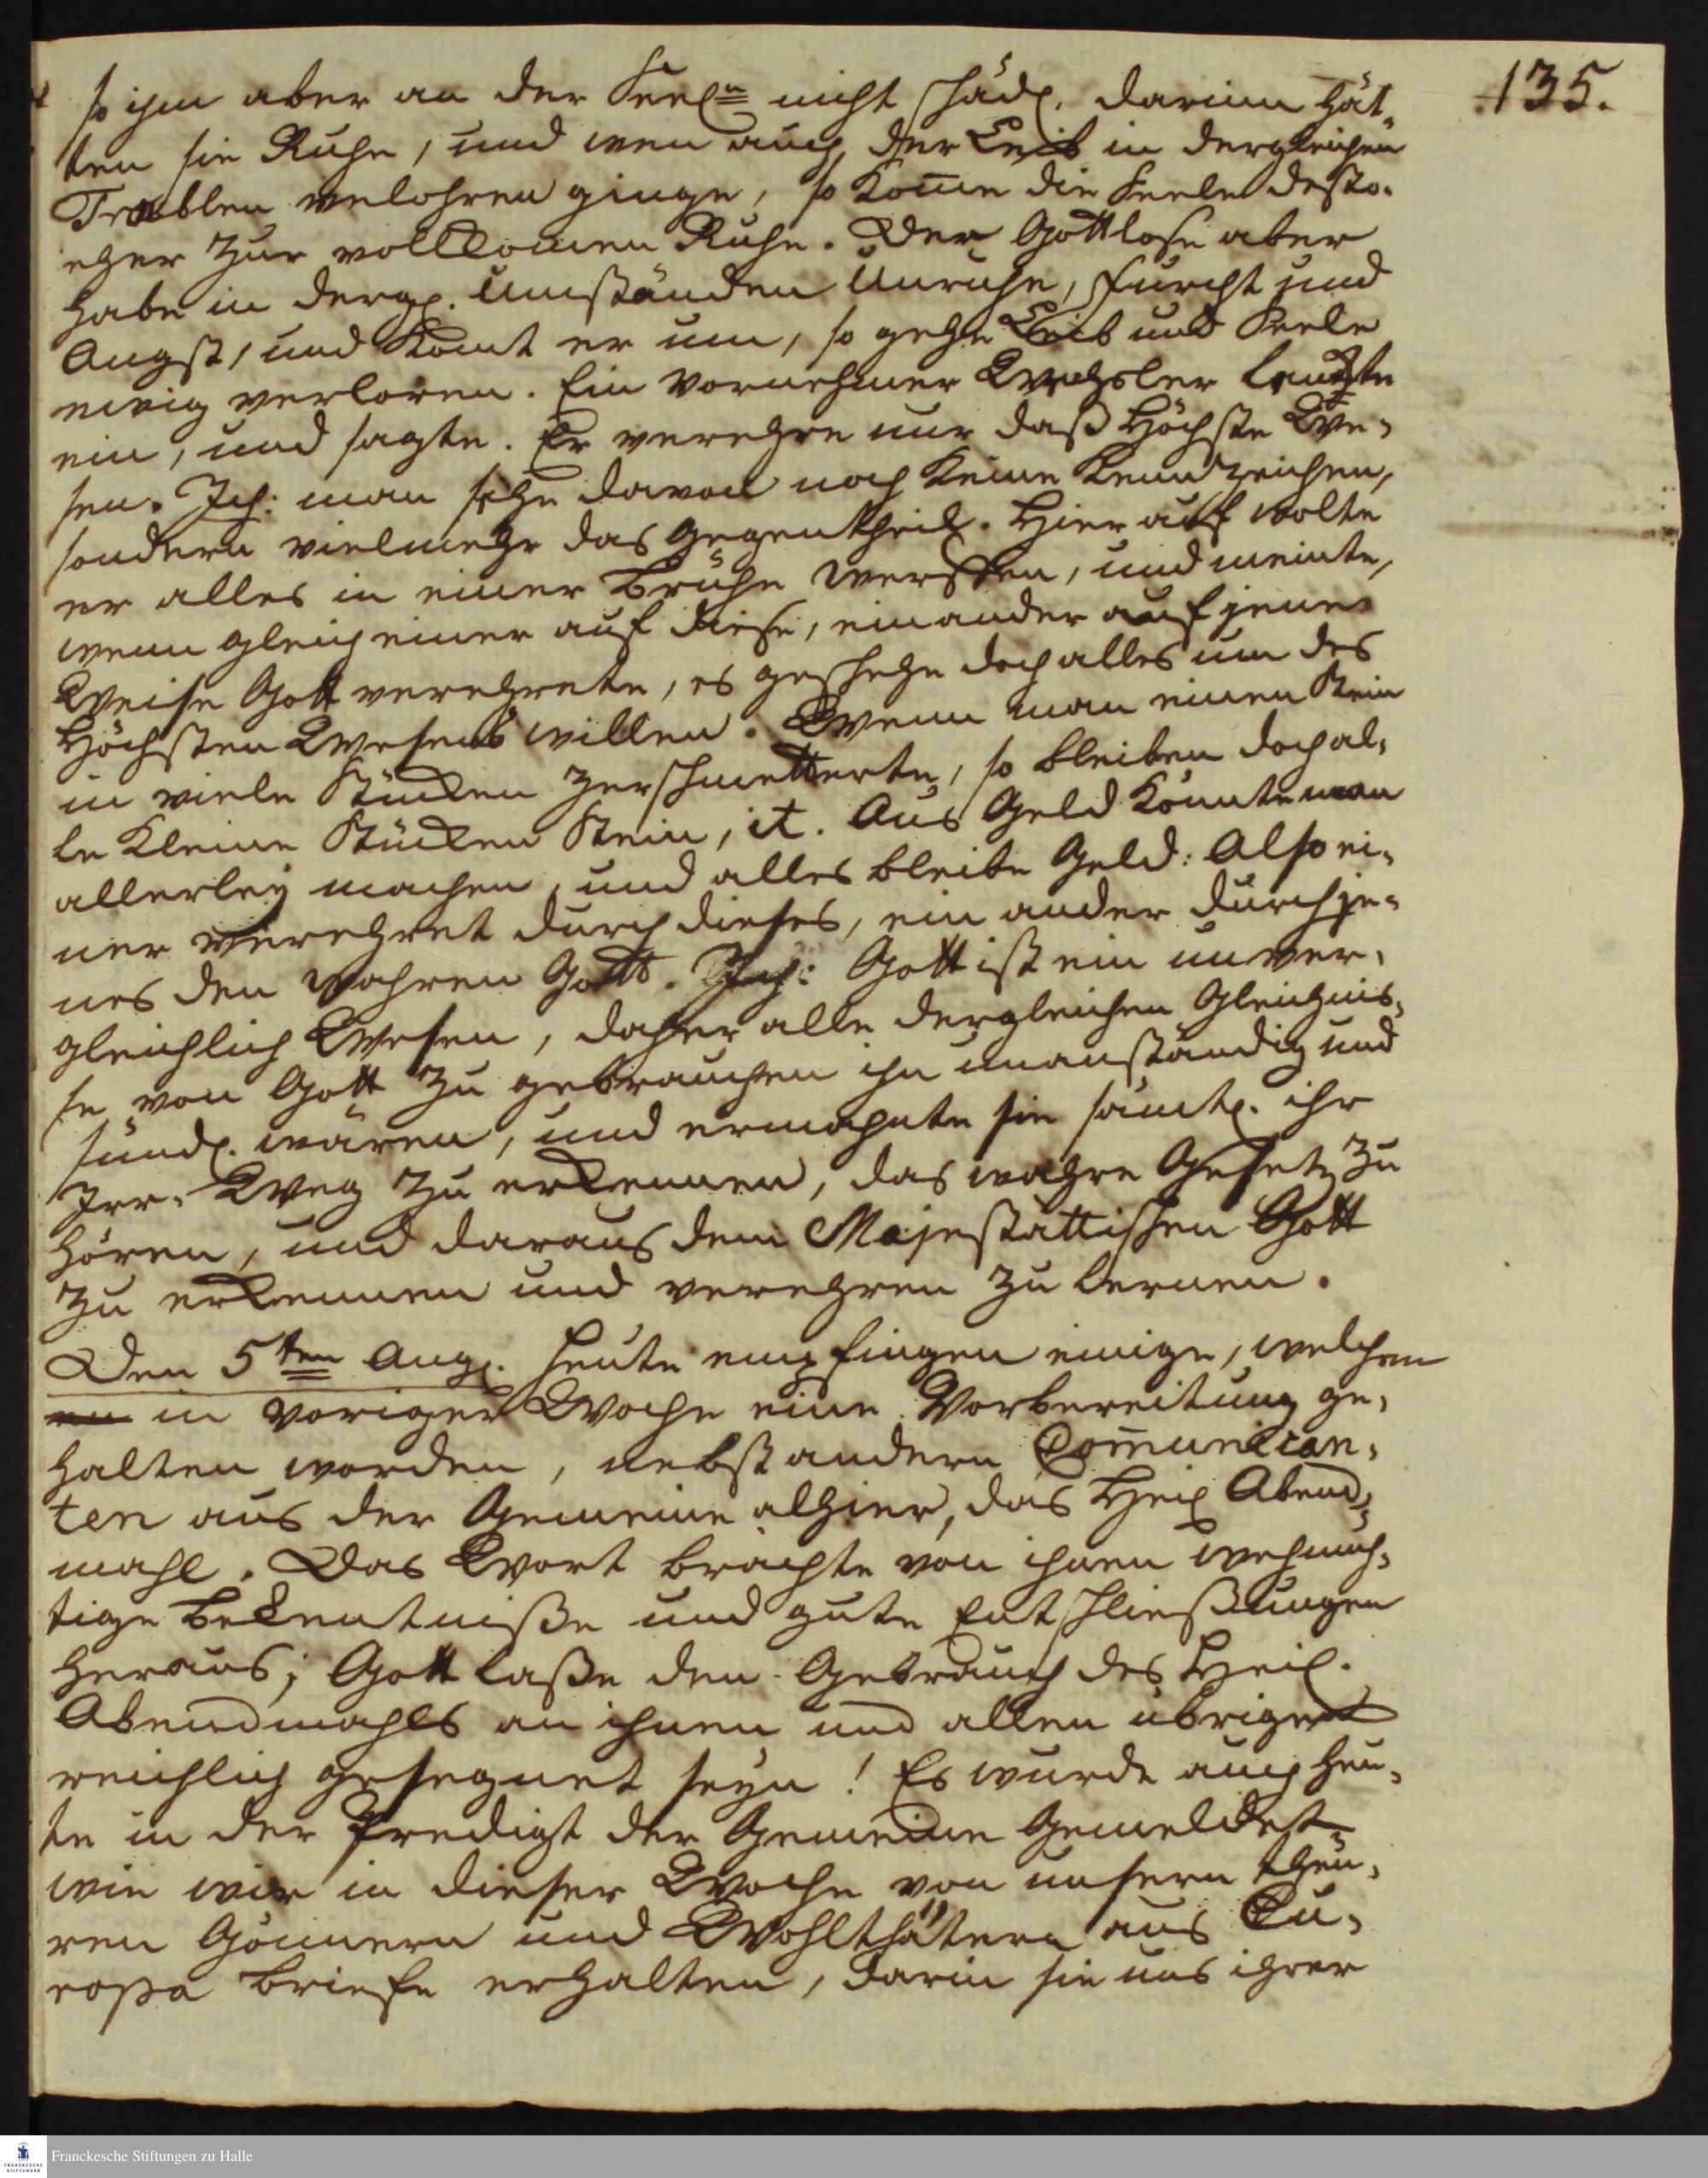 135.
so ihm aber an der Seeln nicht schädl. darinn hät-
ten sie Ruhe, und wen auch der Leib in dergleichen
Troublen velohren ginge, so kome die Seele desto-
eher zur vollkomen Ruhe. Der Gottlose aber
habe in dergl. Umständen Unruhe, Furcht und
Angst, und komt er um, so gehe Leib und Seele
ewig verloren. Ein vornehmer Wechsler lenckte
ein, und sagte. Er verehre nur daß Höchste We-
sen. Ich: man sehe davon noch keine Kennzeichen,
sondern vielmehr das Gegentheil. Hierauf wolte
er alles in einer Brühe werffen, und meinte,
wenn gleich einer auf diese, ein ander auf jene
Weise Gott verehrete, es geschehe doch alles um des
Höchsten Wesens willen. Wenn man einen Stein
in viele Stücken zerschmetterte, so bleiben doch al-
le kleine Stücken Stein, it. Aus Geld könnte man
allerley machen, und alles bleibe Geld: Also ei-
ner verehret durch dieses, ein ander durch je-
nes den wahren Gott. Ich: Gott ist ein unver-
gleichlich Wesen, daher alle dergleichen Gleichnis-
se von Gott zu gebrauchen ihn unanständig und
sündl. wären, und ermahnte sie sämtl. ihr
Irr-Weg zu erkennen, das wahre Gesetz zu
hören, und daraus dem Majestättischen Gott
zu erkennen und verehren zu lernen.
Den 5ten Aug. Heute empfingen einige, welchen
en in voriger Woche eine Vorbereitung ge-
halten worden, nebst andern Comunican-
ten aus der Gemeine alhier, das Heil Abend-
mahl. Das Wort brachte von ihnen wehmüh-
tige Bekentniße und gute Entschließungen
heraus; Gott laße den Gebrauch des Heil.
Abendmahls an ihnen und allen übrigen
reichlich gesegnet seyn! Es wurde auch heu-
te in der Predigt der Gemeine gemeldet
wie wir in dieser Woche von unsern theu-
ren Gönnern und Wohlthätern aus Eu-
ropa Briefe erhalten, darin sie uns ihrer
Franckesche Stiftungen zu Halle